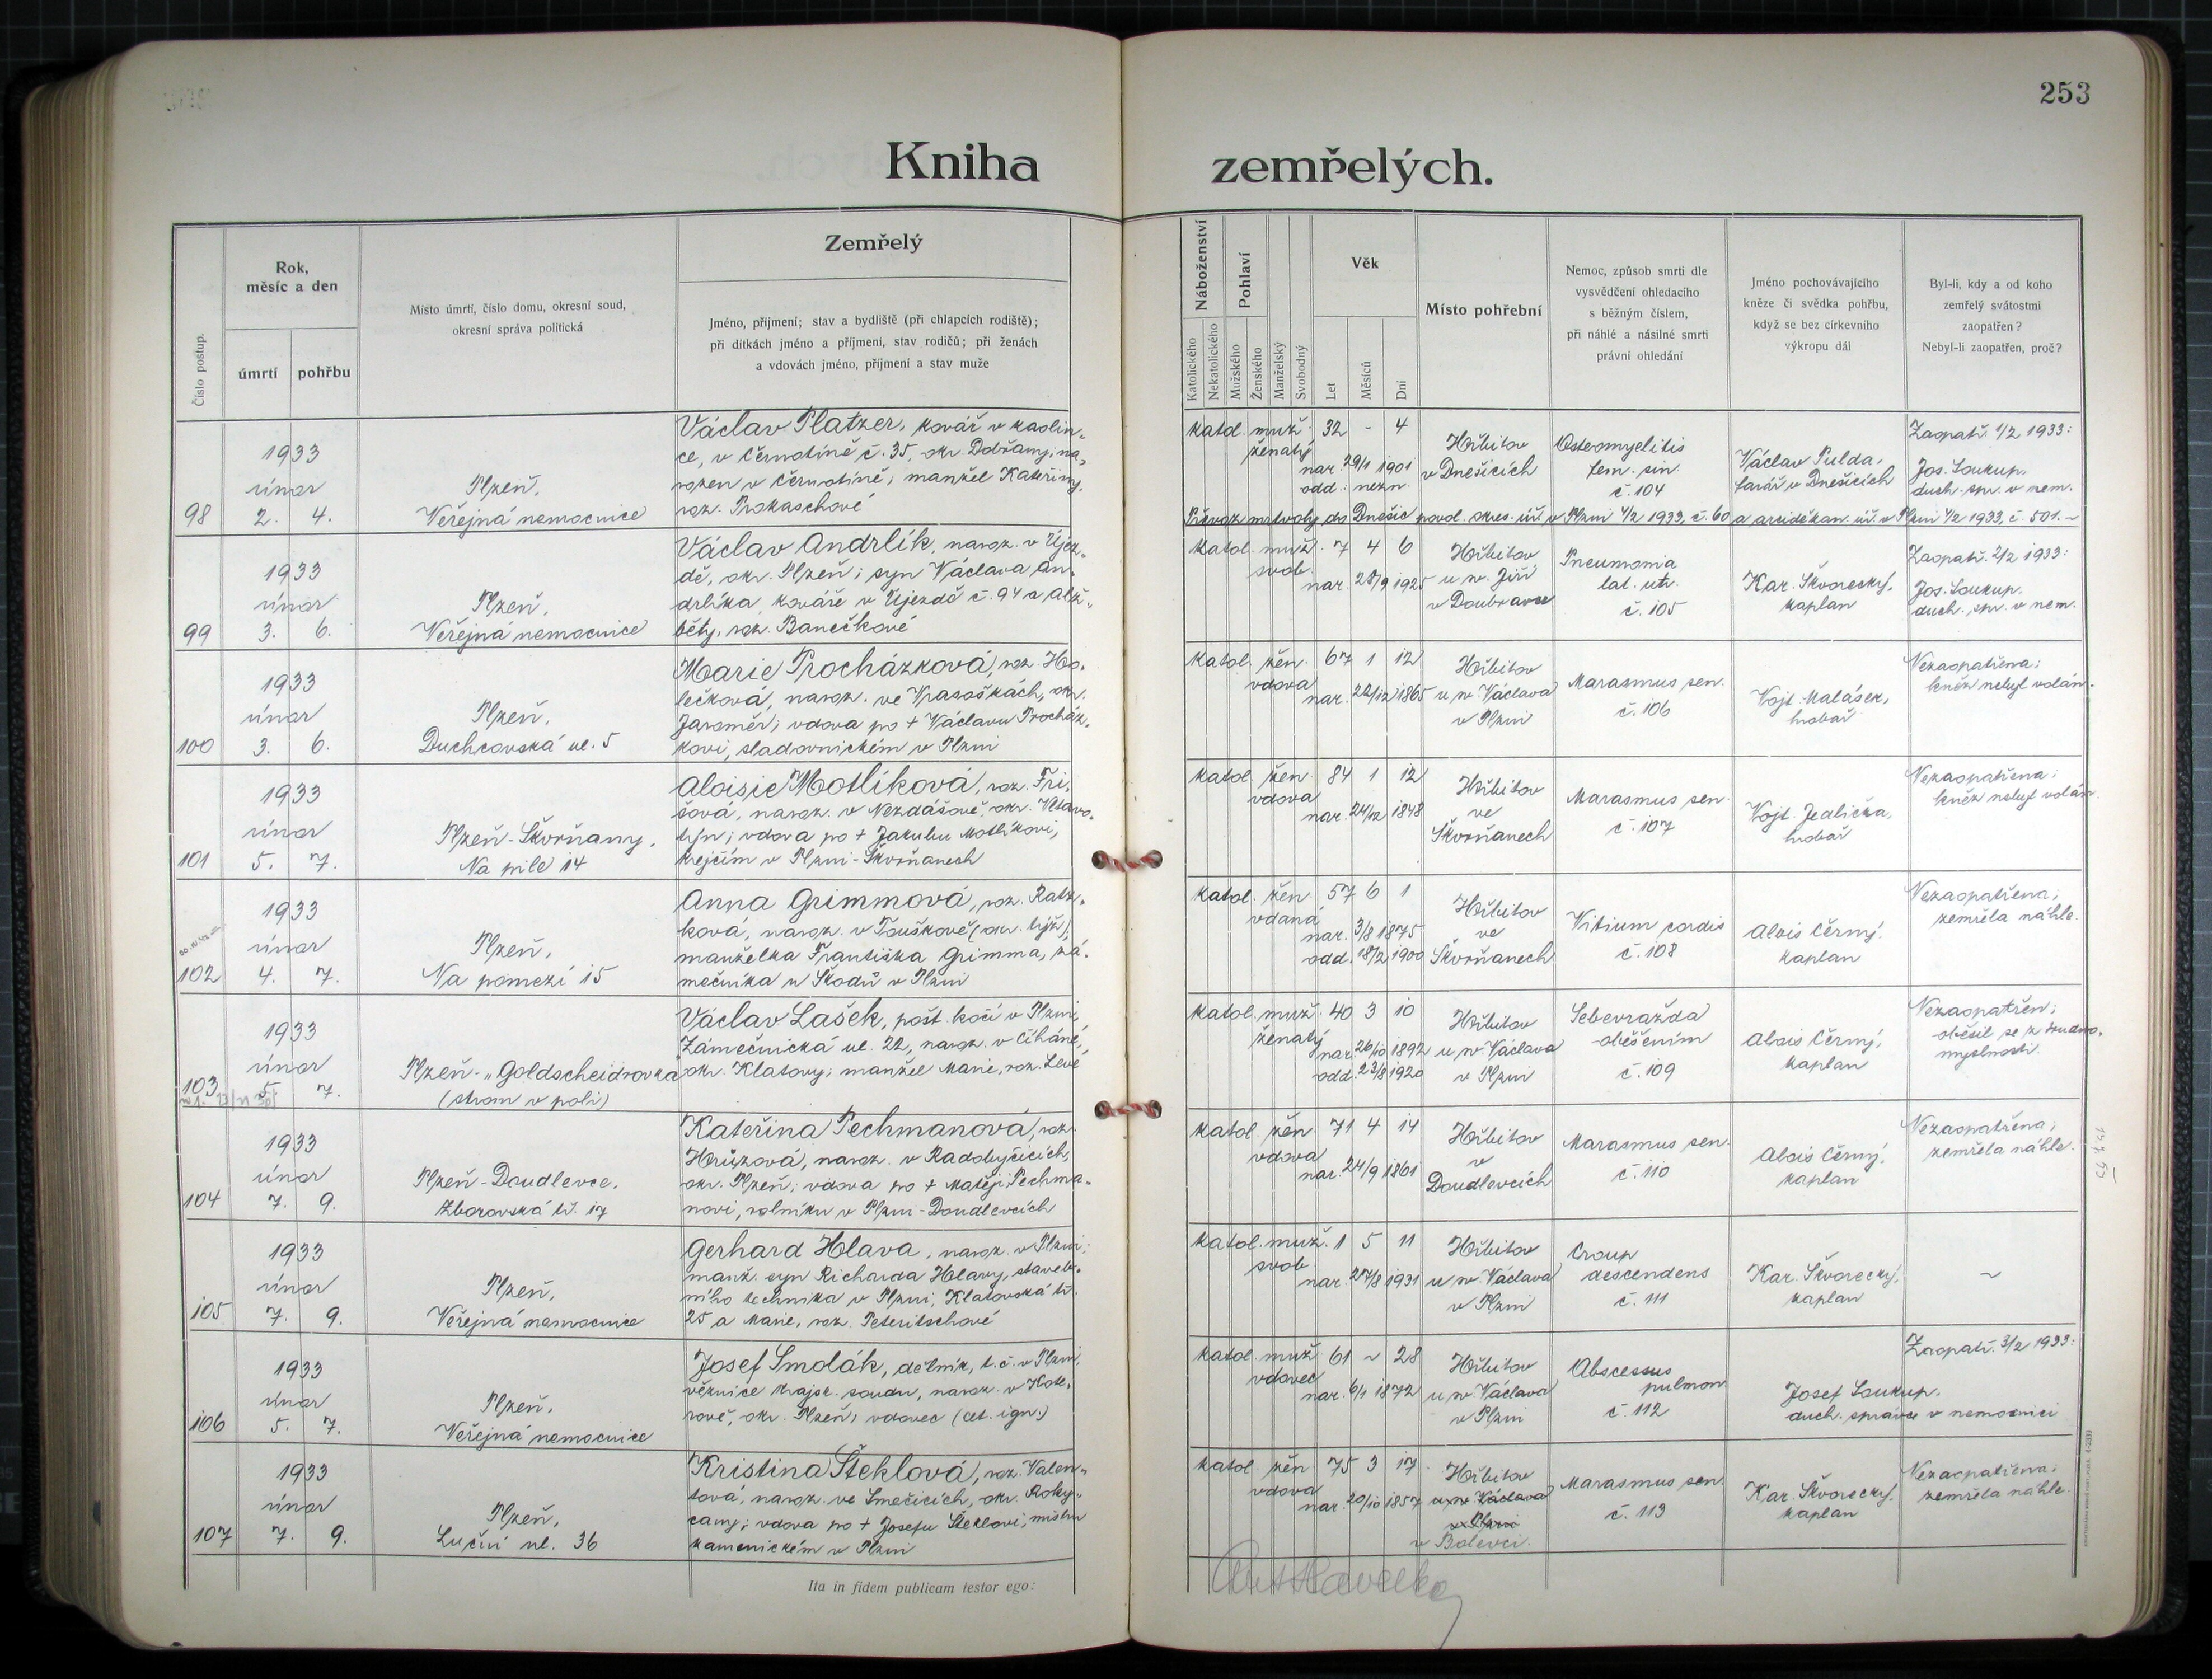 253
Kniha zemřelých.
Číslo postup.
Rok,
měsíc a den
úmrtí
pohřbu
Místo úmrtí, číslo domu, okresní soud,
okresní správa politická
Zemřelý
Jméno, příjmení; stav a bydliště (při chlapcích rodiště);
při dítkách jméno a příjmení, stav rodičů; při ženách
a vdovách jméno, příjmení a stav muže
Náboženství
Katolického
Nekatolického
Pohlaví
Mužského
Ženského
Manželský
Svobodný
Věk
Let
Měsíců
Dní
Místo pohřební
Nemoc, způsob smrti dle
vysvědčení ohledacího
s běžným číslem,
při náhlé a násilné smrti
právní ohledání
Jméno pochovávajícího
kněze či svědka pohřbu,
když se bez církevního
výkropu dál
Byl-li, kdy a od koho
zemřelý svátostmi
zaopatřen?
Nebyl-li zaopatřen, proč?
98
1933
únor
2. 4.
Plzeň,
Veřejná nemocnice
Václav Platzer, kovář v kaolin-
ce, v Černotíně č. 35, okr. Dobřany; na-
rozen v Černotíně; manžel Kateřiny,
roz. Prokaschové
katol. muž. 32 - 4
ženatý
nar. 29/1 1901
odd.: nezn.
Hřbitov
v Dnešicích
Osteomyelitis
fem. sin.
č. 104
Václav Pulda,
farář v Dnešicích
Zaopatř. 1/2 1933:
Jos. Soukup,
duch. spr. v nem.
Převoz mrtvoly do Dnešic povol. okres. úř. v Plzni 4/2 1933, č. 60 a arciděkan. úř. v Plzni 4/2 1933, č. 501. ~
99
1933
únor
3. 6.
Plzeň,
Veřejná nemocnice
Václav Andrlík, naroz. v Újez-
dě, okr. Plzeň; syn Václava An-
drlíka, kováře v Újezdě č. 94 a Alž-
běty, roz. Banečkové
katol. muž. 7 4 6
svob.
nar. 28/9 1925
Hřbitov
u sv. Jiří
v Doubravce
Pneumonia
lat. utr.
č. 105
Kar. Škvorecký,
kaplan
Zaopatř. 2/2 1933:
Jos. Soukup,
duch. spr. v nem.
100
1933
únor
3. 6.
Plzeň,
Duchcovská ul. 5
Marie Procházková, roz. Ho-
lečková, naroz. ve Vrasoškách, okr.
Jaroměř; vdova po + Václavu Procház-
kovi, sladovnickém v Plzni
katol. žen. 67 1 12
vdova
nar. 22/12 1865
Hřbitov
u sv. Václava
v Plzni
Marasmus sen.
č. 106
Vojt. Malásek,
hrobař
Nezaopatřena;
kněz nebyl volán.
101
1933
únor
5. 7.
Plzeň-Škvrňany,
Na pile 14
Aloisie Motlíková, roz. Fri-
šová, naroz. v Nezdášově, okr. Vltavo-
týn; vdova po + Jakubu Motlíkovi,
krejčím v Plzni-Škvrňanech
katol. žen. 84 1 12
vdova
nar. 24/12 1848
Hřbitov
ve
Škvrňanech
Marasmus sen.
č. 107
Vojt. Jedlička,
hrobař
Nezaopatřena;
kněz nebyl volán.
102
1933
únor
4. 7.
Plzeň,
Na pomezí 15
Anna Grimmová, roz. Ratz-
ková, naroz. v Touškově (okr. týž),
manželka Františka Grimma, zá-
mečníka u Škodů v Plzni
katol. žen. 57 6 1
vdaná
nar. 3/8 1875
odd. 18/2 1900
Hřbitov
ve
Škvrňanech
Vitium cordis
č. 108
Alois Černý,
kaplan
Nezaopatřena;
zemřela náhle.
103
1933
únor
5. 7.
Plzeň-„Goldscheidrovka
(strom v poli)
Václav Lašek, pošt. kočí v Plzni,
Zámečnická ul. 22, naroz. v Číháni,
okr. Klatovy; manžel Marie, roz. Levé
katol. muž. 40 3 10
ženatý
nar. 26/10 1892
odd. 23/8 1920
Hřbitov
u sv. Václava
v Plzni
Sebevražda
oběšením
č. 109
Alois Černý,
kaplan
Nezaopatřen;
oběsil se z trudno-
myslnosti.
104
1933
únor
7. 9.
Plzeň-Doudlevce,
Zborovská tř. 17
Kateřina Pechmanová, roz.
Hrůzová, naroz. v Radobyčicích,
okr. Plzeň; vdova po + Matěji Pechma-
novi, rolníku v Plzni-Doudlevcích
katol. žen. 71 4 14
vdova
nar. 24/9 1861
Hřbitov
v
Doudlevcích
Marasmus sen.
č. 110
Alois Černý,
kaplan
Nezaopatřena;
zemřela náhle.
105
1933
únor
7. 9.
Plzeň,
Veřejná nemocnice
Gerhard Hlava, naroz. v Plzni;
manž. syn Richarda Hlavy, staveb-
ního technika v Plzni, Klatovská tř.
25 a Marie, roz. Peteritschové
katol. muž. 1 5 11
svob.
nar. 27/8 1931
Hřbitov
u sv. Václava
v Plzni
Croup
descendens
č. 111
Kar. Škvorecký,
kaplan
~
106
1933
únor
5. 7.
Plzeň,
Veřejná nemocnice
Josef Smolák, dělník, t. č. v Plzni,
věznice krajsk. soudu, naroz. v Kote-
rově, okr. Plzeň; vdovec (cet. ign.)
katol. muž. 61 ~ 28
vdovec
nar. 6/1 1872
Hřbitov
u sv. Václava
v Plzni
Abscessus
pulmon.
č. 112
Josef Soukup,
duch. správce v nemocnici
Zaopatř. 3/2 1933:
107
1933
únor
7. 9.
Plzeň,
Luční ul. 36
Kristina Šteklová, roz. Valen-
tová, naroz. ve Smečicích, okr. Roky-
cany; vdova po + Josefu Šteklovi, mistru
kamenickém v Plzni
katol. žen. 75 3 17
vdova
nar. 20/10 1857
Hřbitov
u sv. Václava
v Plzni
v Bolevci.
Marasmus sen.
č. 113
Kar. Škvorecký,
kaplan
Nezaopatřena;
zemřela náhle.
Ita in fidem publicam testor ego: